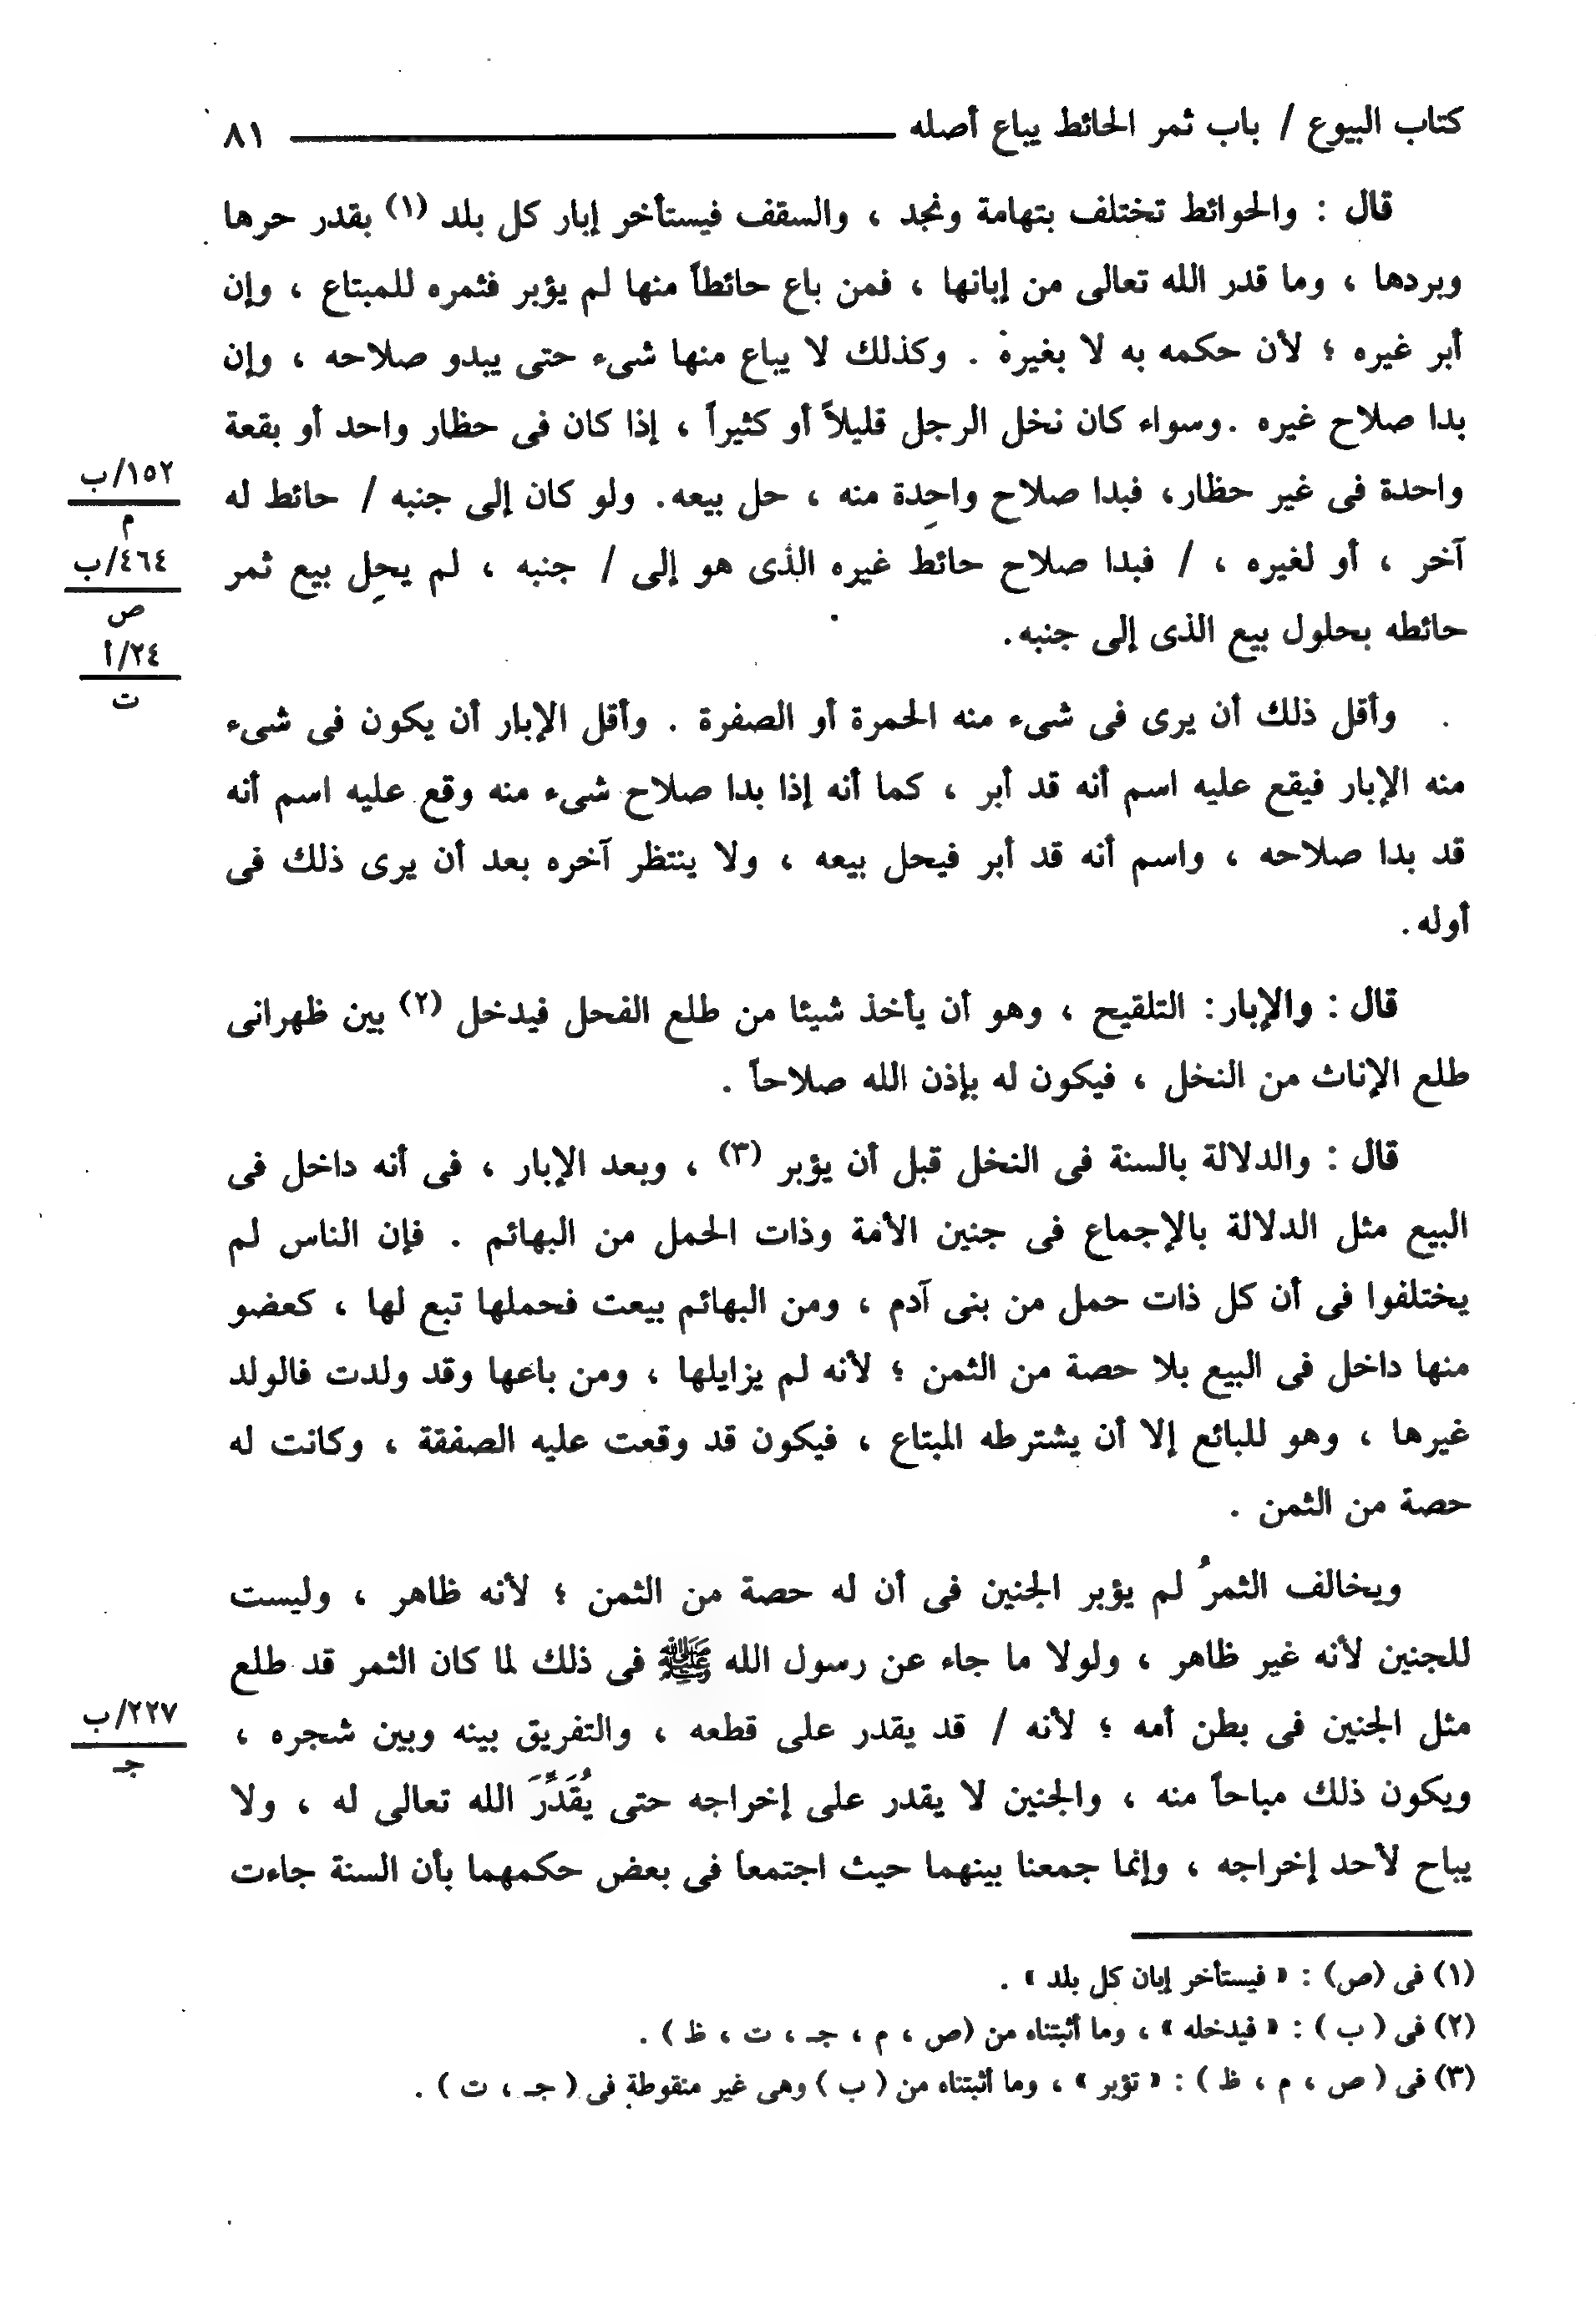 كتاب البيوع / باب ثمر الحائط يباع أصله ــــــــــ ٨١
قال : والحوائط تختلف بتهامة ونجد ، والسقف فيستأخر إبار كل بلد (١) بقدر حرها
وبردها ، وما قدر الله تعالى من إبانها ، فمن باع حائطاً منها لم يؤبر فثمره للمبتاع ، وإن
أبر غيره ؛ لأن حكمه به لا بغيره . وكذلك لا يباع منها شىء حتى يبدو صلاحه ، وإن
بدا صلاح غيره .وسواء كان نخل الرجل قليلاً أو كثيراً ، إذا كان فى حظار واحد أو بقعة
واحدة فى غير حظار، فبدا صلاح واحِدة منه ، حل بيعه. ولو كان إلى جنبه / حائط له
آخر ، أو لغيره ، / فبدا صلاح حائط غيره الذى هو إلى / جنبه ، لم يحِل بيع ثمر
حائطه بحلول بيع الذى إلى جنبه.
١٥٢/ب
م
٤٦٤/ب
ص
٢٤/أ
ت
وأقل ذلك أن يرى فى شىء منه الحمرة أو الصفرة . وأقل الإبار أن يكون فى شىء
منه الإبار فيقع عليه اسم أنه قد أبر ، كما أنه إذا بدا صلاح شىء منه وقع عليه اسم أنه
قد بدا صلاحه ، واسم أنه قد أبر فيحل بيعه ، ولا ينتظر آخره بعد أن يرى ذلك فى
أوله.
قال : والإبار: التلقيح ، وهو أن يأخذ شيئا من طلع الفحل فيدخل (٢) بين ظهرانى
طلع الإناث من النخل ، فيكون له بإذن الله صلاحاً .
قال : والدلالة بالسنة فى النخل قبل أن يؤبر (٣) ، وبعد الإبار ، فى أنه داخل فى
البيع مثل الدلالة بالإجماع فى جنين الأمة وذات الحمل من البهائم . فإن الناس لم
يختلفوا فى أن كل ذات حمل من بنى آدم ، ومن البهائم بيعت فحملها تبع لها ، كعضو
منها داخل فى البيع بلا حصة من الثمن ؛ لأنه لم يزايلها ، ومن باعها وقد ولدت فالولد
غيرها ، وهو للبائع إلا أن يشترطه المبتاع ، فيكون قد وقعت عليه الصفقة ، وكانت له
حصة من الثمن .
ويخالف الثمرُ لم يؤبر الجنين فى أن له حصة من الثمن ؛ لأنه ظاهر ، وليست
للجنين لأنه غير ظاهر ، ولولا ما جاء عن رسول الله ﷺ فى ذلك لما كان الثمر قد طلع
مثل الجنين فى بطن أمه ؛ لأنه / قد يقدر على قطعه ، والتفريق بينه وبين شجره ،
٢٢٧/ب
جـ
ويكون ذلك مباحاً منه ، والجنين لا يقدر على إخراجه حتى يُقَدِّرَ الله تعالى له ، ولا
يباح لأحد إخراجه ، وإنما جمعنا بينهما حيث اجتمعا فى بعض حكمهما بأن السنة جاءت
(١) فى (ص) : « فيستأخر إبان كل بلد » .
(٢) فى ( ب ) : « فيدخله » ، وما أثبتناه من (ص ، م ، جـ ، ت ، ظ ) .
(٣) فى ( ص ، م ، ظ ) : « تؤبر » ، وما أثبتناه من ( ب ) وهى غير منقوطة فى ( جـ ، ت ) .